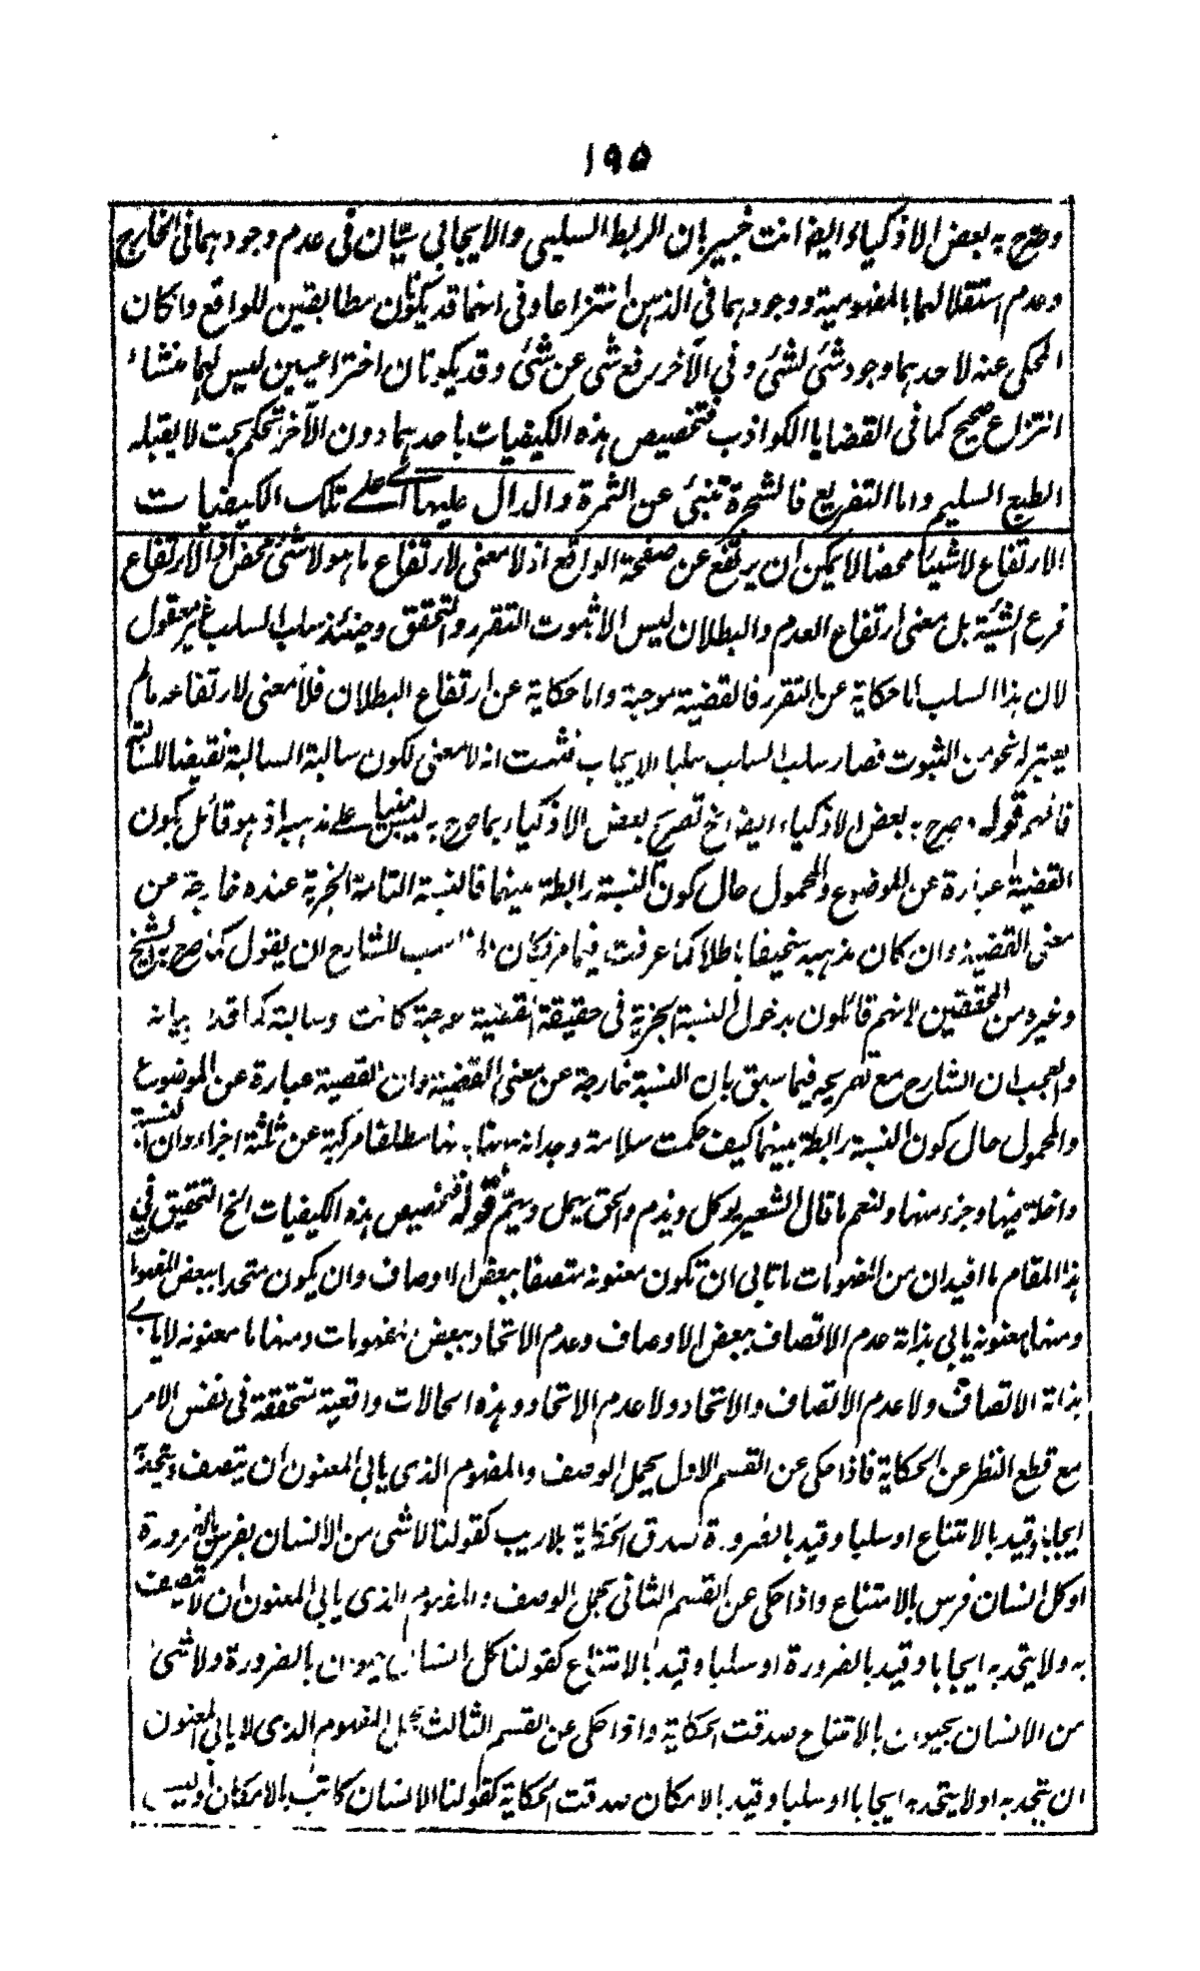 ١٩٥
وصرح به بعض الاذكياء ايضا انت خبير بان الربط السلبي والايجابي سيّان في عدم وجودهما في الخارج
وعدم استقلالهما بالمفهومية ووجودهما في الذهن انتزاعا وفي انهما قد يكونان مطابقين للواقع وان كان
المحكى عنه لاحدهما وجود شئ لشئ وفي الآخر رفع شئ عن شئ وقد يكونان اختراعيين ليس لهما منشاء
انتزاع صحيح كما في القضايا الكواذب فتخصيص هذه الكيفيات باحدهما دون الآخر تحكم بحت لا يقبله
الطبع السليم واما التفريع فالشجرة تنبئ عن الثمرة والدال عليها اے على تلك الكيفيات
الارتفاع لا شيئا محضا لا يمكن ان يرتفع عن صفحة الواقع اذ لا معنى لارتفاع ما هو لا شئ محض اذ الارتفاع
فرع الشيئية بل معنى ارتفاع العدم والبطلان ليس الا ثبوت التقرر والتحقق وحينئذ سلب السلب غير معقول
لان هذا السلب اما حكاية عن التقرر فالقضية موجبة واما حكاية عن ارتفاع البطلان فلا معنى لارتفاعه ما لم
يعتبر له نحو من الثبوت فصار سلب السلب سلبا لايجاب فثبت انه لا معنى لكون سالبة السالبة نقيضا للسالبة
فافهم قوله وصرح به بعض الاذكياء ايضا الخ تصريح بعض الاذكياء بما صرح به ليس مبنيا على مذهبه اذ هو قائل بكون
القضية عبارة عن الموضوع والمحمول حال كون النسبة رابطة بينهما فالنسبة التامة الخبرية عنده خارجة عن
معنى القضية وان كان مذهبه سخيفا باطلا كما عرفت فيما مر فكان المناسب للشارح ان يقول كما صرح به الشيخ
وغيره من المحققين لانهم قائلون بدخول النسبة الخبرية في حقيقة القضية موجبة كانت وسالبة كما قد بيانه
والعجب ان الشارح مع تصريحه فيما سبق بان النسبة خارجة عن معنى القضية وان القضية عبارة عن الموضوع
والمحمول حال كون النسبة رابطة بينهما كيف حكمت سلامة وجدانه بانها مطلقا مركبة عن ثلثة اجزاء وان النسبة
داخلة فيها وجزء منها ولنعم ما قال الشعير يوكل ويذم والحق يهمل ويتم قوله فتخصيص هذه الكيفيات الخ التحقيق في
هذا المقام ما افيد ان من المفهومات ما تابى ان تكون معنونه متصفا ببعض الاوصاف وان يكون متحدا ببعض المفهومات
ومنها معنونه يابى بذاته عدم الاتصاف ببعض الاوصاف وعدم الاتحاد ببعض مفهومات ومنها ما معنونه لا يابے
بذاته الاتصاف ولا عدم الاتصاف والاتحاد ولا عدم الاتحاد وهذه الحالات واقعية متحققة في نفس الامر
مع قطع النظر عن الحكاية فاذا حكى عن القسم الاول بحمل الوصف والمفهوم الذي يابى المعنون ان يتصف ويتحد به
ايجابا وقيد بالامتناع او سلبا وقيد بالضرورة صدق الحكاية بلا ريب كقولنا لا شئ من الانسان بفرس بالضرورة
او كل انسان فرس بالامتناع واذا حكى عن القسم الثاني بحمل الوصف والمفهوم الذي يابى المعنون ان لا يتصف
به ولا يتحد به ايجابا وقيد بالضرورة او سلبا وقيد بالامتناع كقولنا كل انسان حيوان بالضرورة ولا شئ
من الانسان بحيوان بالامتناع صدقت الحكاية واذا حكى عن القسم الثالث بحمل المفهوم الذي لا يابى المعنون
ان يتحد به او لا يتحد به ايجابا او سلبا وقيد بالامكان صدقت الحكاية كقولنا الانسان كاتب بالامكان او ليس